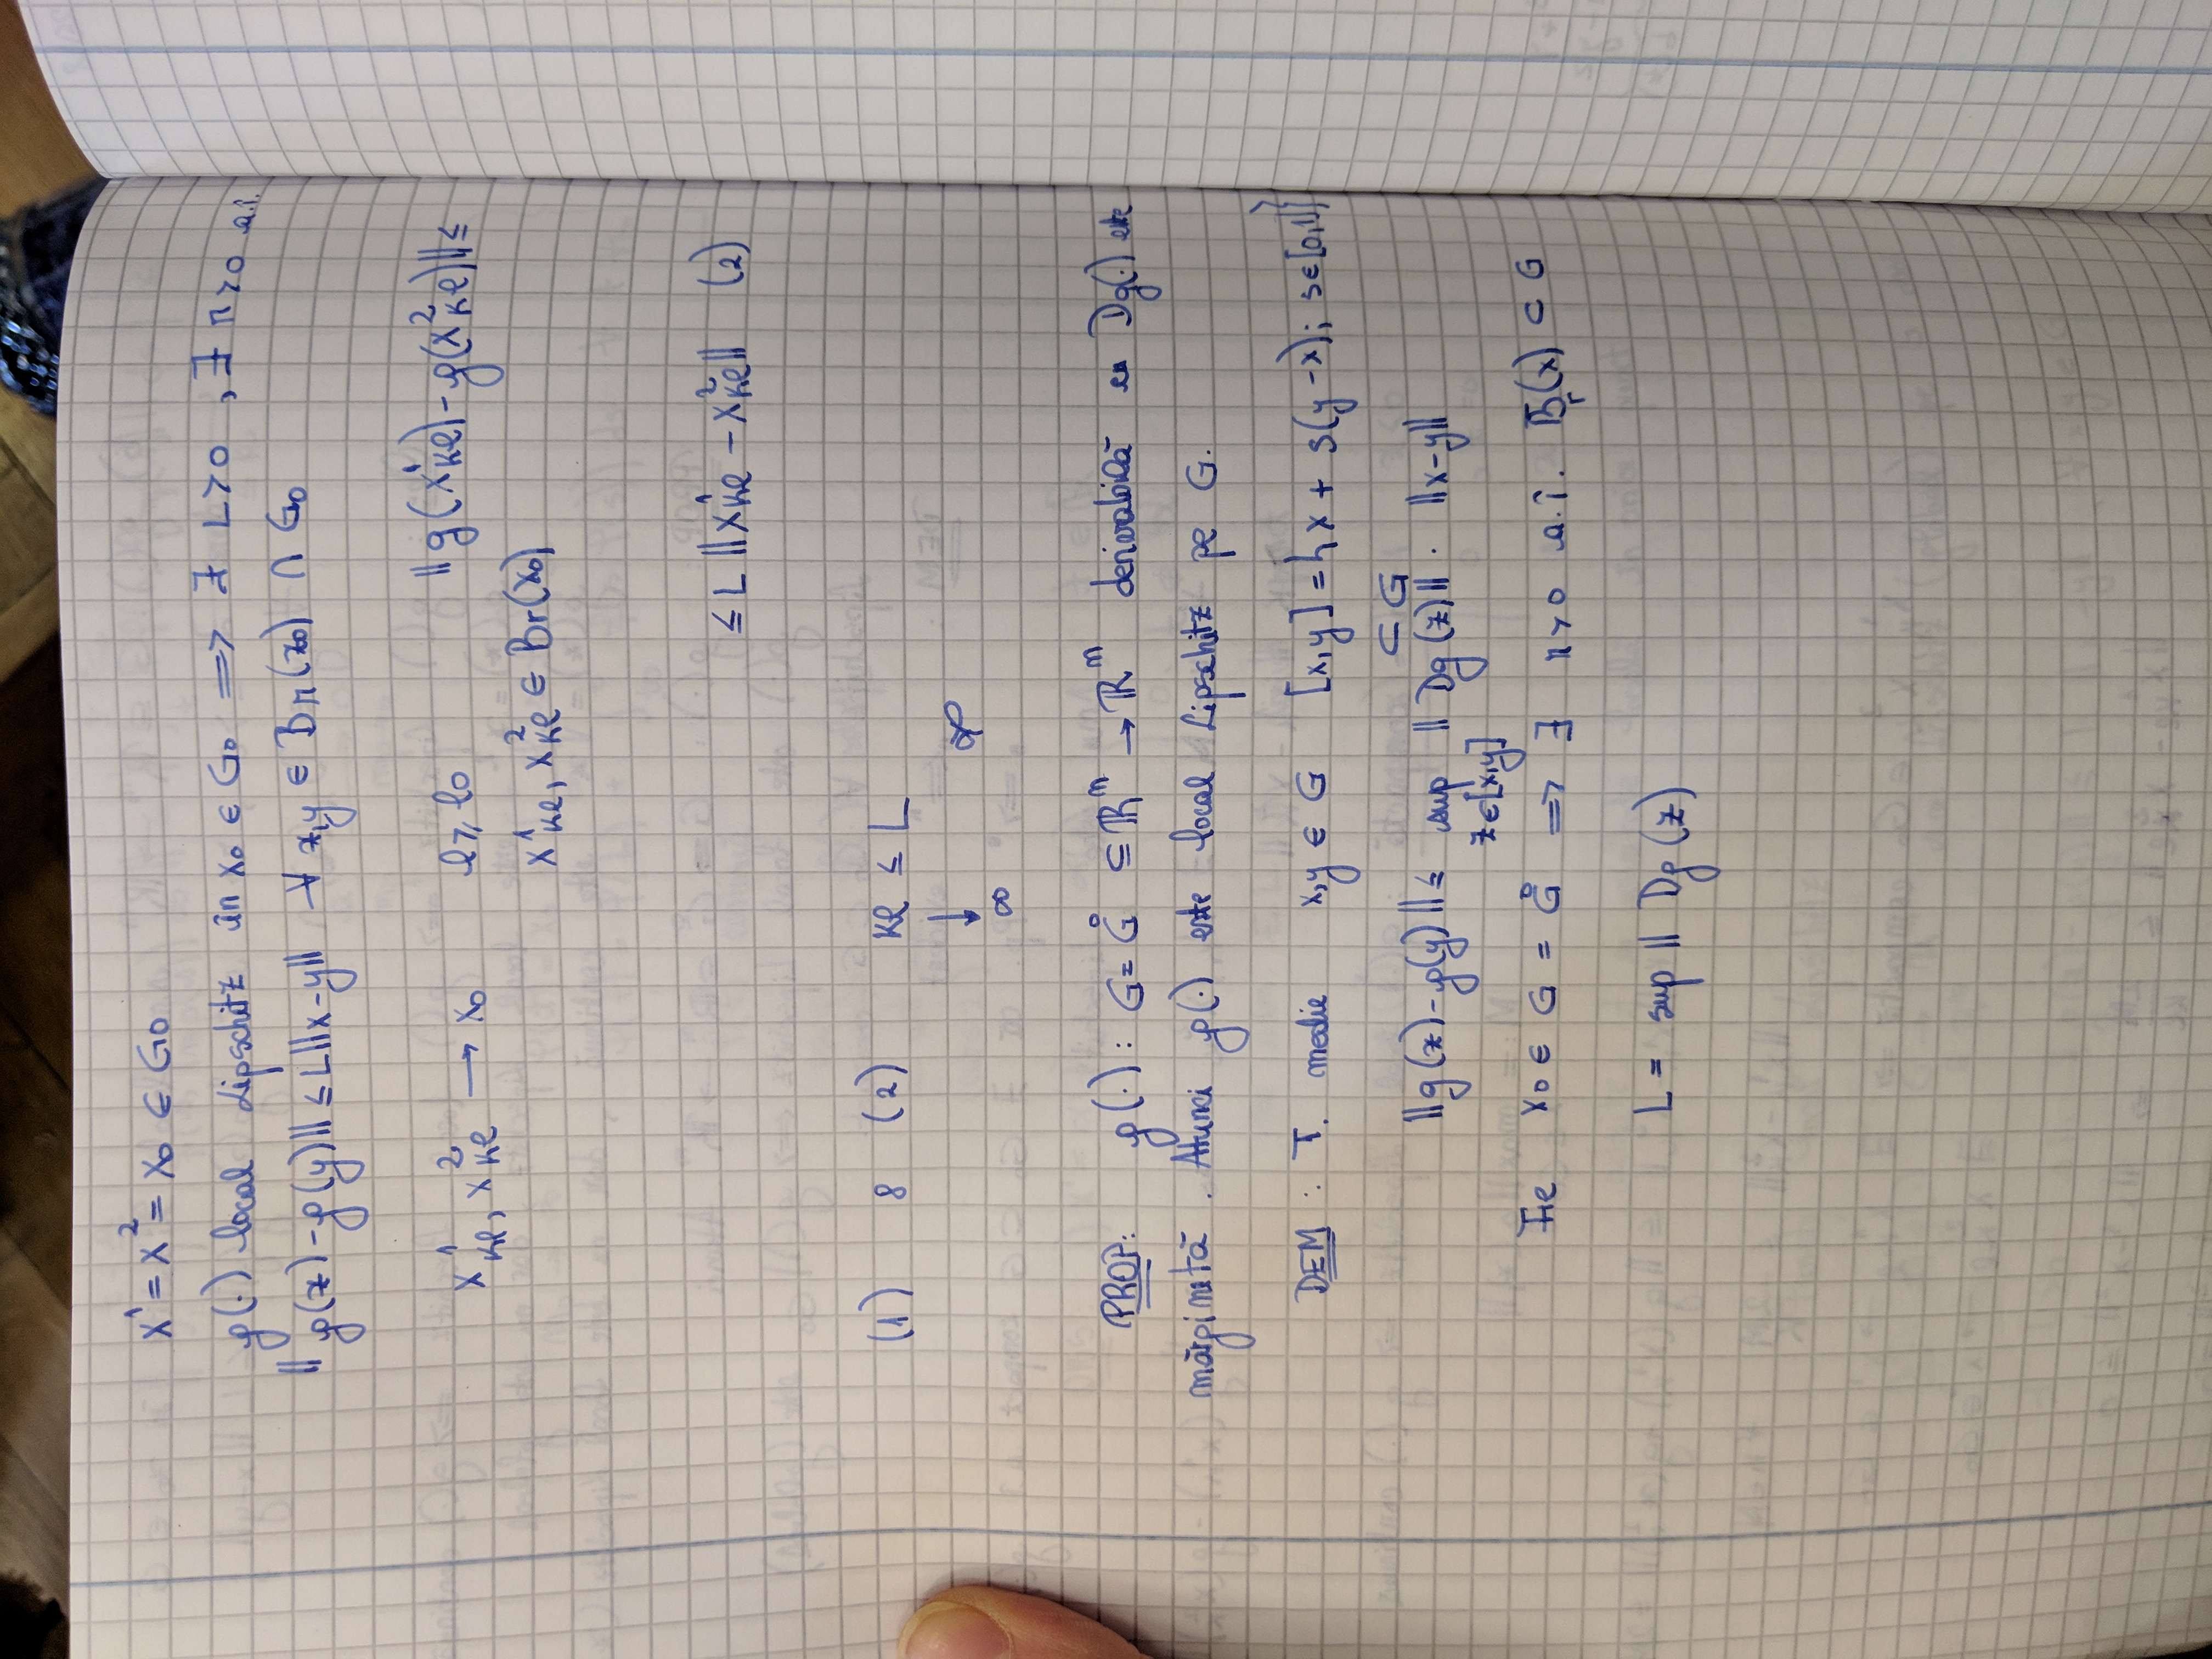 x¹ = x² = x₀ ∈ G₀
g(·) local Lipschitz în x₀ ∈ G₀ => ∃ L>0 , ∃ r>0 a.î.
‖g(x)-g(y)‖ ≤ L‖x-y‖ ∀ x,y ∈ Br(x₀) ∩ G₀
x¹ₖₗ, x²ₖₗ → x₀ l ≥ l₀ ‖g(x¹ₖₗ)-g(x²ₖₗ)‖ ≤
x¹ₖₗ, x²ₖₗ ∈ Br(x₀)
≤ L ‖x¹ₖₗ - x²ₖₗ‖ (2)
(1) & (2) kl ≤ L
↓
∞
PROP: g(·): G = G̊ ⊆ ℝⁿ → ℝᵐ derivabilă cu Dg(·) este
mărginită . Atunci g(·) este local Lipschitz pe G.
DEM : T. medie x,y ∈ G [x,y] = {x + s(y-x); s∈[0,1]}
⊂ G
‖g(x)-g(y)‖ ≤ sup ‖Dg(z)‖ · ‖x-y‖
z∈[x,y]
Fie x₀ ∈ G = G̊ => ∃ r>0 a.î. B̅r(x) ⊂ G
L = sup ‖ Dg(z)